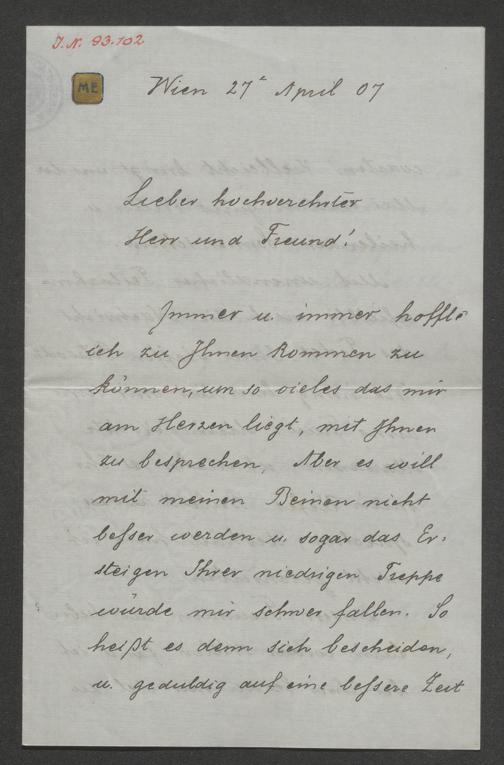 J. N. 93.102
ME
Wien 27t April 07
Lieber hochverehrter
Herr und Freund!
Immer u. immer hoffte
ich zu Ihnen kommen zu
können, um so vieles das mir
am Herzen liegt, mit Ihnen
zu besprechen, Aber es will
mit meinen Beinen nicht
beßer werden u. sogar das Er-
steigen Ihrer niedrigen Treppe
würde mir schwer fallen. So
heißt es denn sich bescheiden,
u. geduldig auf eine beßere Zeit